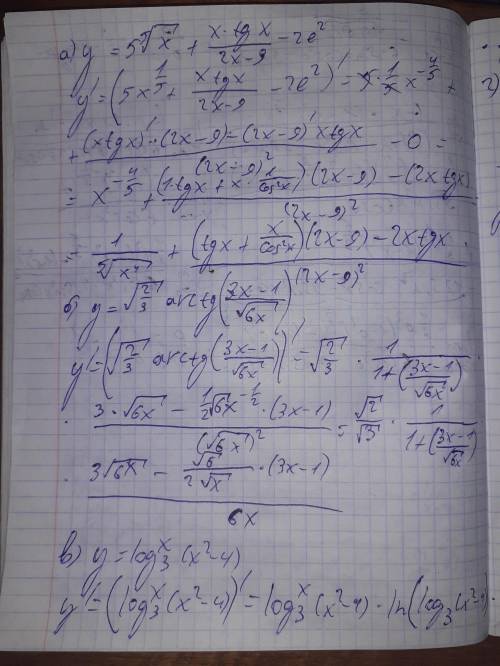 а) y = 5 ⁵√x + (x·tg x)/(2x-9) - 2e²
y' = (5x^(1/5) + (x tg x)/(2x-9) - 2e²)' = 5·(1/5) x^(-4/5) +
+ ((x tg x)'·(2x-9) - (2x-9)' x tg x)/(2x-9)² - 0 =
= x^(-4/5) + ((1·tg x + x·1/cos²x)(2x-9) - (2x tg x))/(2x-9)²
= 1/⁵√x⁴ + ((tg x + x/cos²x)(2x-9) - 2x tg x)/(2x-9)²
б) y = √(2/3) arctg((3x-1)/√6x)
y' = (√(2/3) arctg((3x-1)/√6x))' = √(2/3) · 1/(1+((3x-1)/√6x)) ·
· (3·√6x - 1/2 √6x^(-1/2)·(3x-1))/(√6x)² = √2/√3 · 1/(1+((3x-1)/√6x))
· (3√6x - √6/(2√x)·(3x-1))/6x
в) y = log₃ˣ(x²-4)
y' = (log₃ˣ(x²-4))' = log₃ˣ(x²-4) · ln(log₃(x²-4)·
2)
y